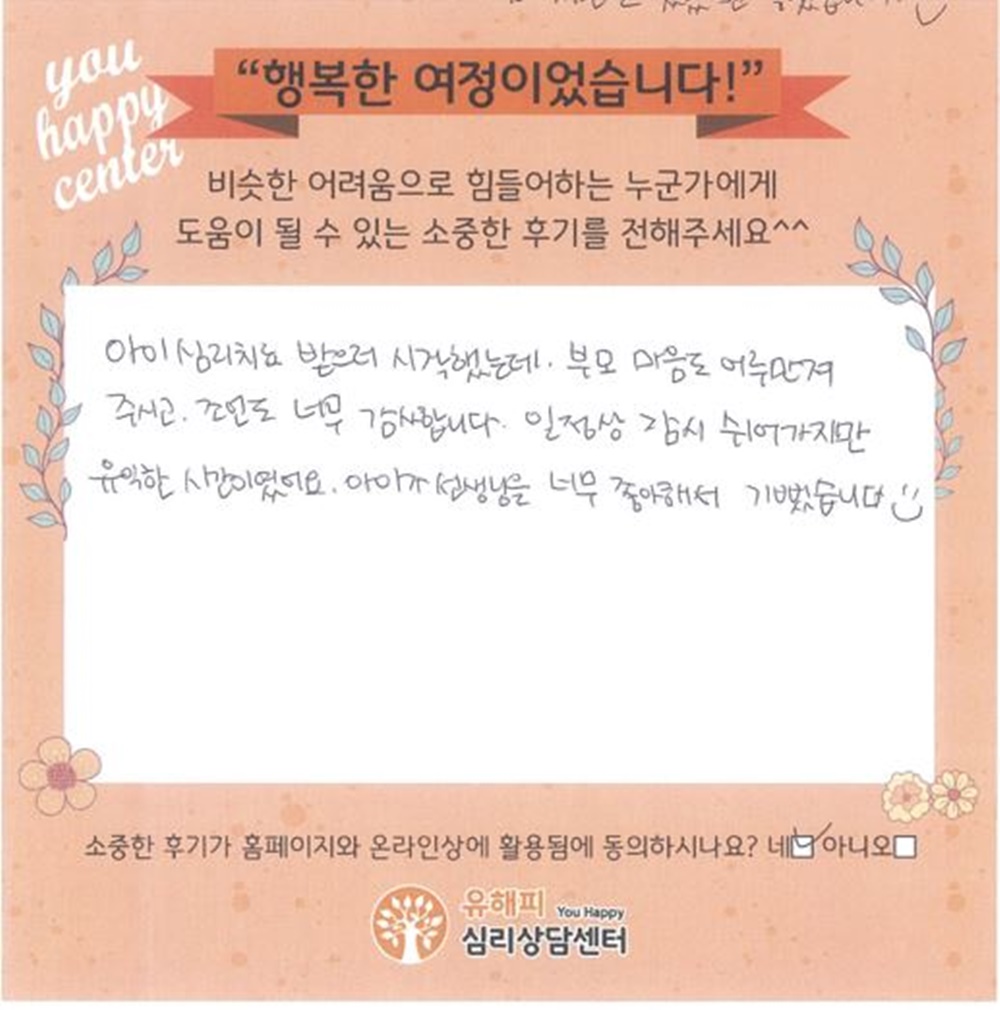 you
happy
center
“행복한 여정이었습니다!”
비슷한 어려움으로 힘들어하는 누군가에게
도움이 될 수 있는 소중한 후기를 전해주세요^^
아이 심리치료 받으러 시작했는데. 부모 마음도 어루만져
주시고. 조언도 너무 감사합니다. 일정상 잠시 쉬어가지만
유익한 시간이였어요. 아이가 선생님을 너무 좋아해서 기뻤습니다
소중한 후기가 홈페이지와 온라인상에 활용됨에 동의하시나요? 네 아니오
유해피 You Happy
심리상담센터